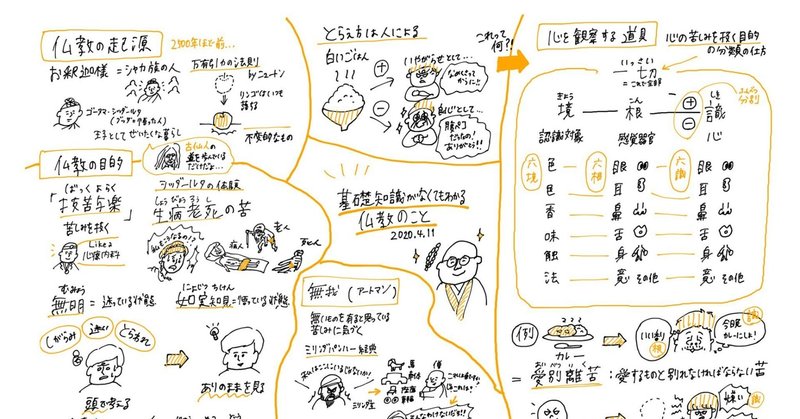 仏教の起源
2500年ほど前…
お釈迦様=シャカ族の人
ゴータマ・シッダールタ
王子としてぜいたくな暮らし
万有引力の法則
by ニュートン
リンゴはいつも
落ちる
不変的なもの
古仏人の
道を歩んでいる
だけだよ…
仏教の目的
ばっく よらく
「抜苦与楽」
苦しみを抜く
Like a
心療内科
シッダールタの体験
しょうびょうろうし
生病老死の苦
病人
老人
死人
むみょう
無明=迷っている状態
にょじつちけん
如実知見=悟っている状態
しがらみ
迷い
とらわれ
頭で考える
ありのまま見る
とらえ方は人による
白いごはん
+
−
いやがらせとして…
なめとんのか
からに!!
良心として…
腹ペコ
だったの!
ありがとう!!
これって
何?!
基礎知識がなくてもわかる
仏教のこと
2020.4.11
無我(アートマン)
無いものを有ると思っている
苦しみに気づく
ミリンダパンハー経典
ミリンダ王
僧
心を観察する道具
心の苦しみを抜く目的
の分類の仕方
いっさい
一切
=これで全部
きょう
境
こん
根
+
−
しき
識
ふんべつ
分別
認識対象
感覚器官
心
六境
六根
六識
色 眼 眼
声 耳 耳
香 鼻 鼻
味 舌 舌
触 身 身
法 意 その他 意 その他
例
カレー
いい匂い
根
今晩
カレーにしよ!
識
=愛別離苦:愛するものと別れなければならない苦
嫌い